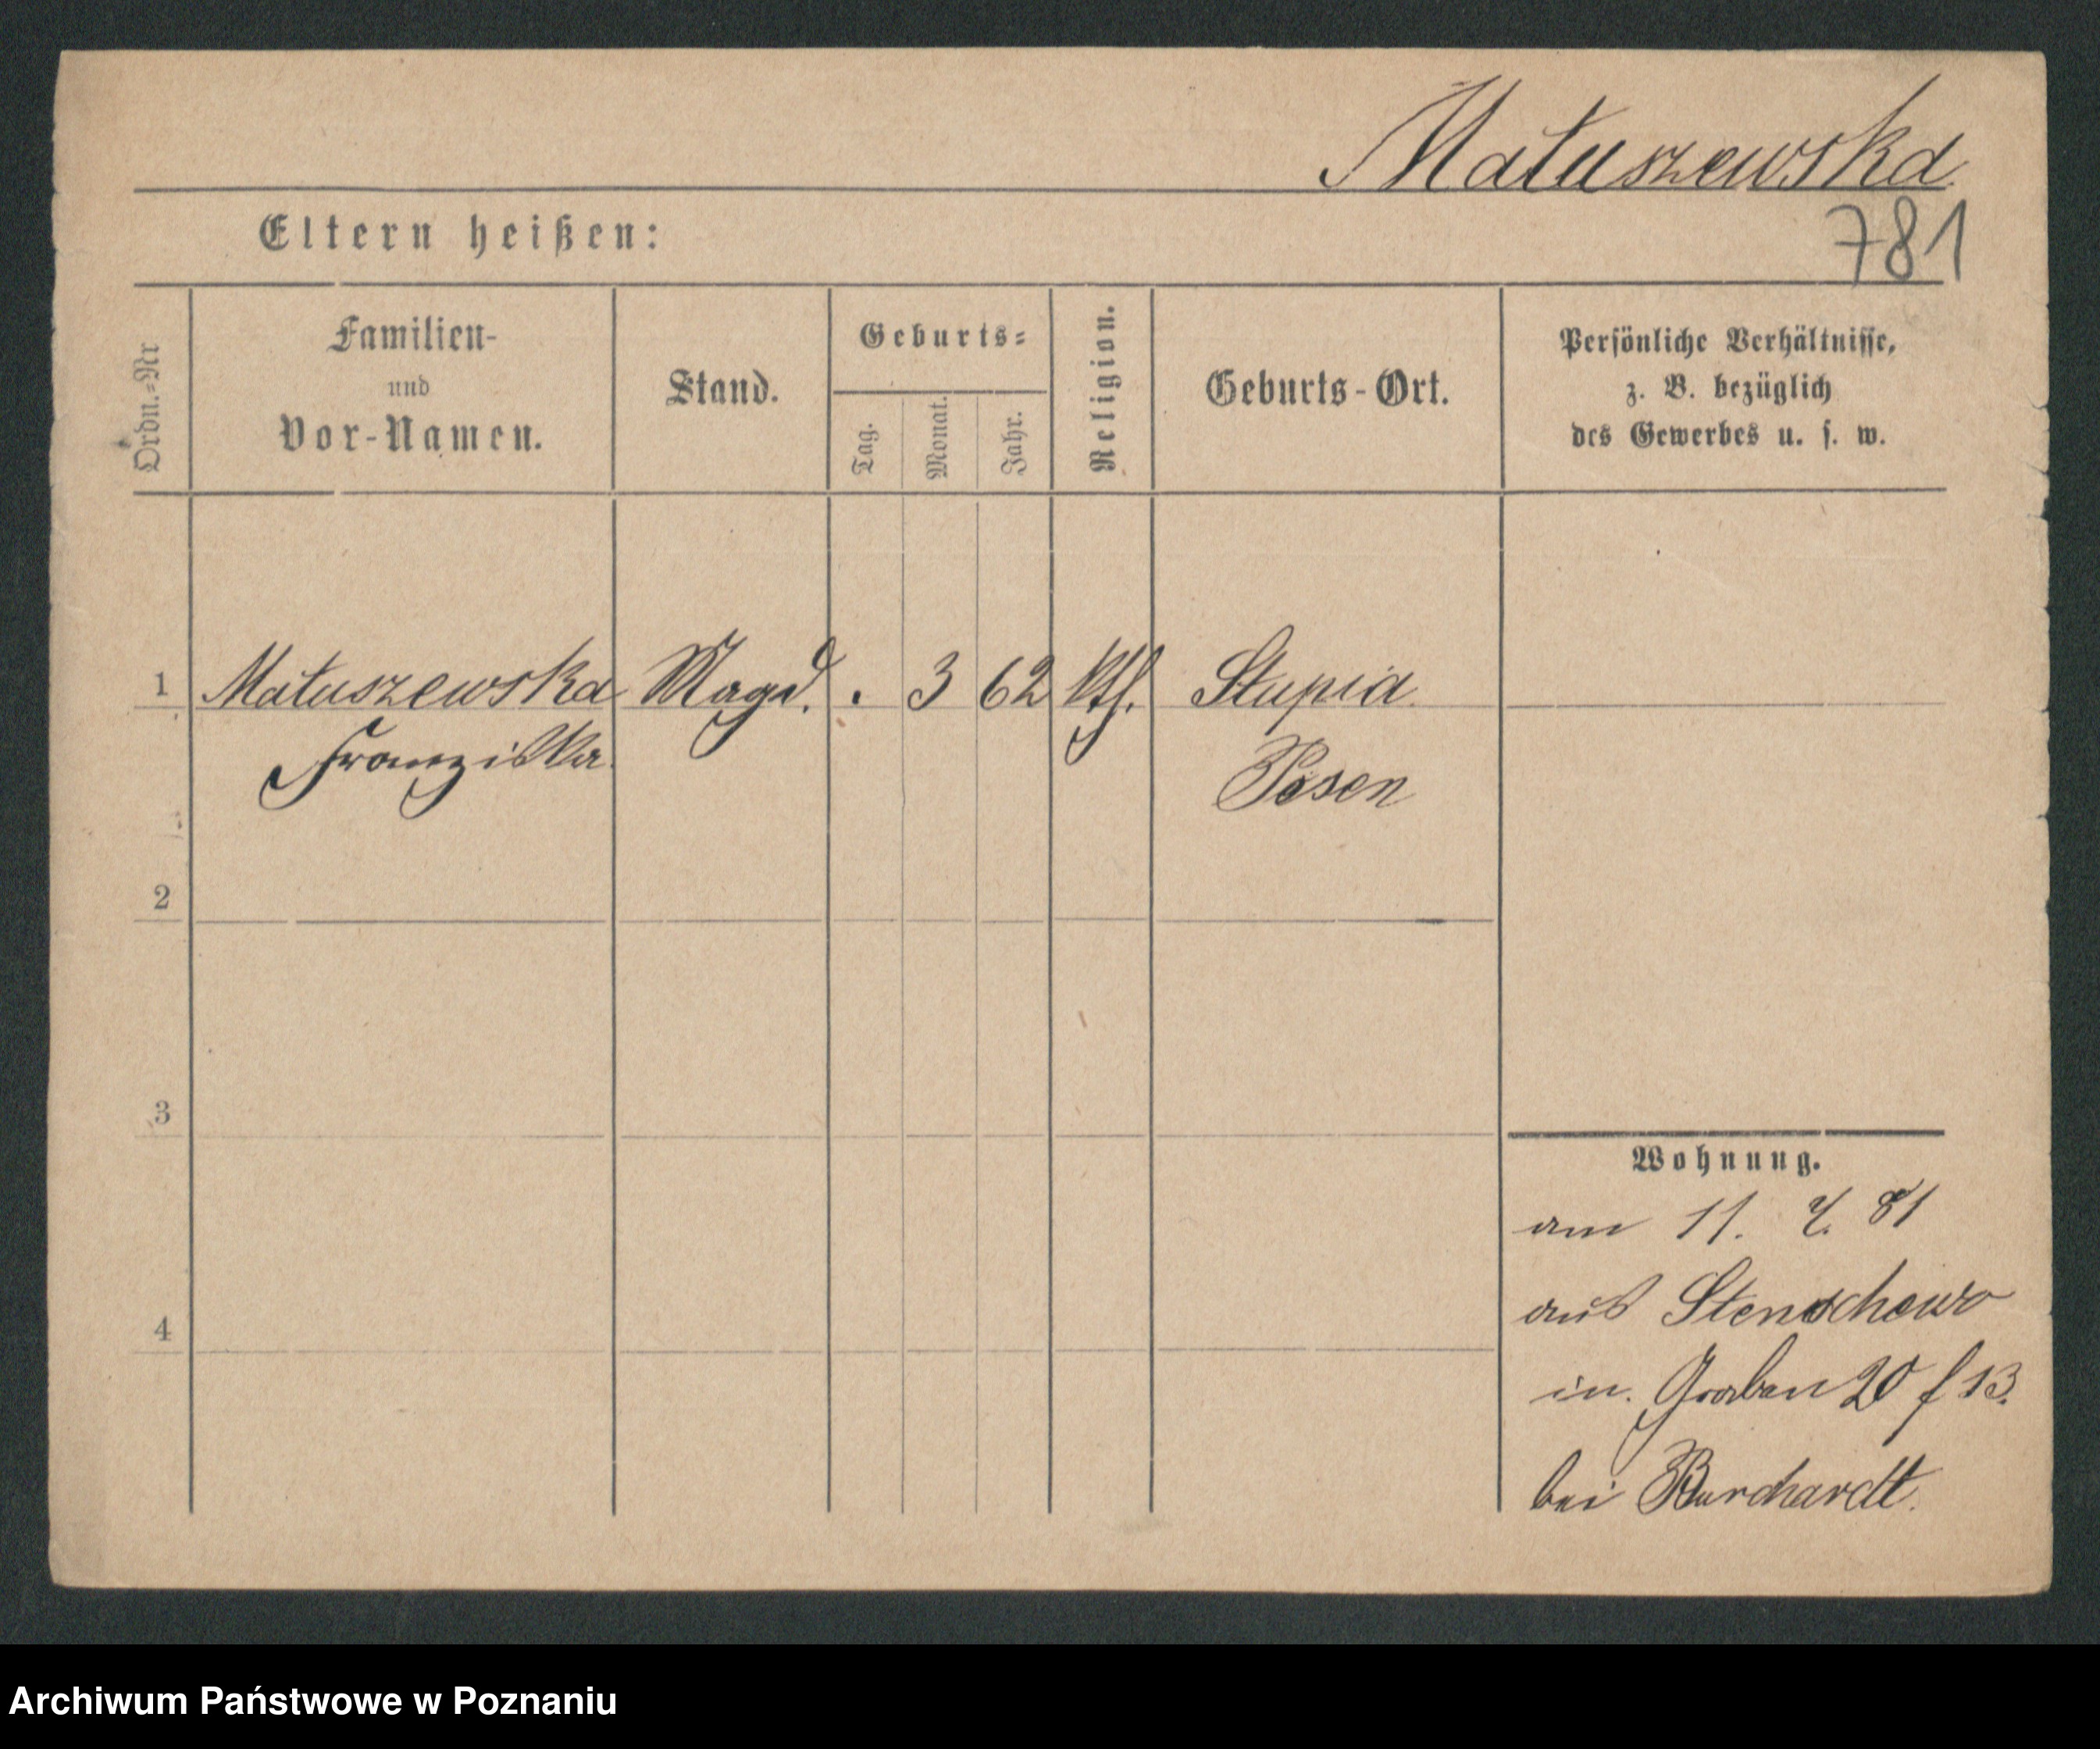 Matuszewska
Eltern heißen:
781
Ordn.=Nr
Familien-
und
Vor-Namen.
Stand.
Geburts=
Tag.
Monat.
Jahr.
Religion.
Geburts-Ort.
Persönliche Verhältnisse,
z. B. bezüglich
des Gewerbes u. s. w.
1 Matuszewska Magd. . 3 62 kth. Stupia
Franziska Posen
2
3
4
Wohnung.
am 11. 81
aus Stenschewo
in. Graben 20 f 13.
bei Burchardt.
Archiwum Państwowe w Poznaniu